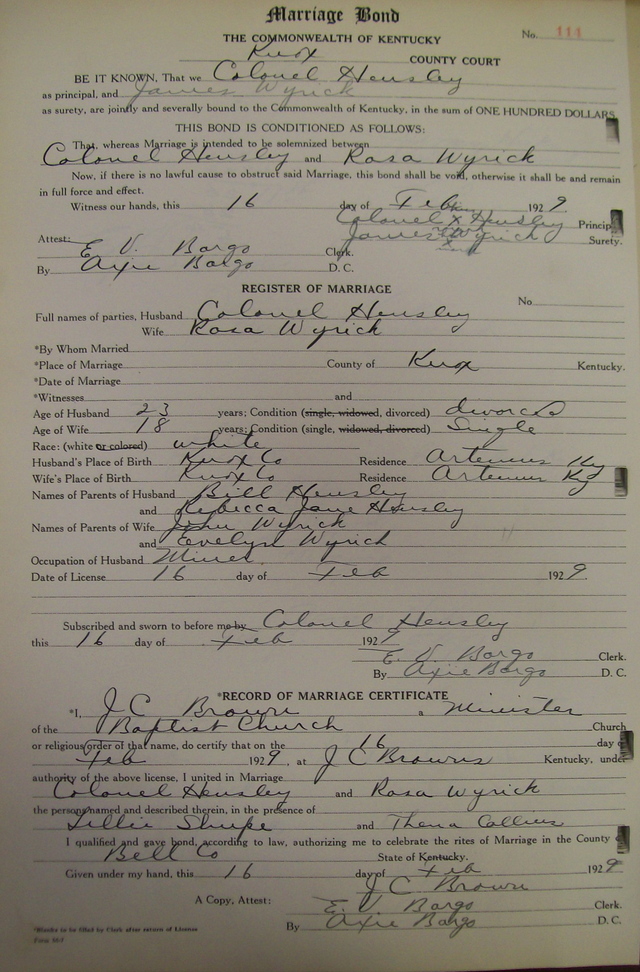 Marriage Bond
No. 111
THE COMMONWEALTH OF KENTUCKY
Knox COUNTY COURT
BE IT KNOWN, That we Colonel Hensley
as principal, and James Wyrick
as surety, are jointly and severally bound to the Commonwealth of Kentucky, in the sum of ONE HUNDRED DOLLARS
THIS BOND IS CONDITIONED AS FOLLOWS:
That, whereas Marriage is intended to be solemnized between
Colonel Hensley and Rosa Wyrick
Now, if there is no lawful cause to obstruct said Marriage, this bond shall be void, otherwise it shall be and remain
in full force and effect.
Witness our hands, this 16 day of Feb 1929
Colonel X Hensley Principal
James Wyrick Surety.
Attest: E V Bargo Clerk.
By Axie Bargo D. C.
REGISTER OF MARRIAGE
No.
Full names of parties, Husband Colonel Hensley
Wife Rosa Wyrick
*By Whom Married
*Place of Marriage County of Knox Kentucky.
*Date of Marriage
*Witnesses and
Age of Husband 23 years; Condition (single, widowed, divorced) divorced
Age of Wife 18 years; Condition (single, widowed, divorced) Single
Race: (white or colored) white
Husband's Place of Birth Knox Co Residence Artemus Ky
Wife's Place of Birth Knox Co Residence Artemus Ky
Names of Parents of Husband Bill Hensley
and Rebecca Jane Hensley
Names of Parents of Wife John Wyrick
and Evelyn Wyrick
Occupation of Husband Miner
Date of License 16 day of Feb 1929.
Subscribed and sworn to before me by Colonel Hensley
this 16 day of Feb 1929
E. V Bargo Clerk.
By Axie Bargo D. C.
*RECORD OF MARRIAGE CERTIFICATE
*I, J C Brown a Minister
of the Baptist Church Church
or religious order of that name, do certify that on the 16 day of
Feb 1929, at J C Browns Kentucky, under
authority of the above license, I united in Marriage
Colonel Hensley and Rosa Wyrick
the persons named and described therein, in the presence of
Lillie Shupe and Thena Collins
I qualified and gave bond, according to law, authorizing me to celebrate the rites of Marriage in the County of
Bell Co State of Kentucky.
Given under my hand, this 16 day of Feb 1929
J C Brown
A Copy, Attest: E. V Bargo Clerk.
By Axie Bargo D. C.
*Blanks to be filled by Clerk after return of License